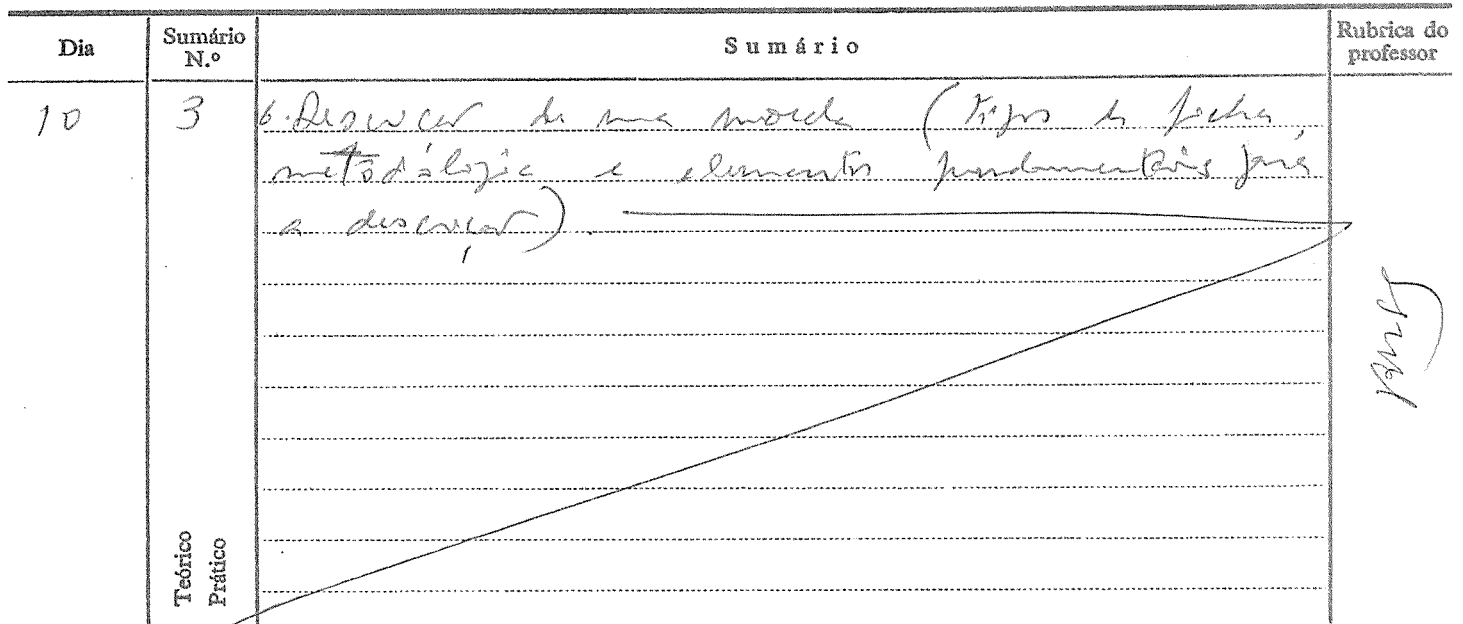 Dia
Sumário N.º
Sumário
Rubrica do professor
10
3
6. Descrição de uma moeda (tipos de ficha,
metodologia e elementos fundamentais para
a descrição).
Teórico
Prático